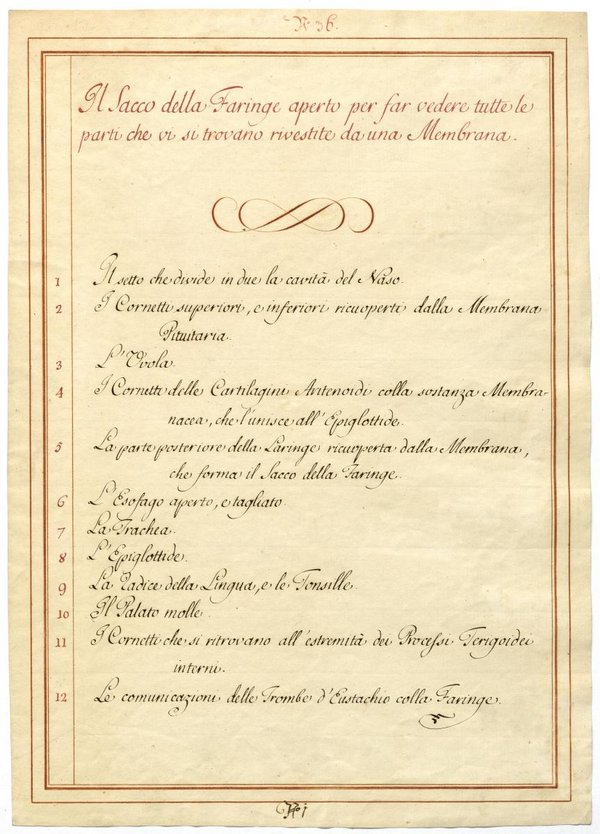 N.º 36.
Il Sacco della Faringe aperto per far vedere tutte le
parti che vi si trovano rivestite da una Membrana.
1 Il setto che divide in due la cavità del Naso.
2 I Cornetti superiori, e inferiori ricuoperti dalla Membrana
Pituitaria.
3 L'Uvola.
4 I Cornetti delle Cartilagini Aritenoidi colla sostanza Membra-
nacea, che l'unisce all'Epiglottide.
5 La parte posteriore della Laringe ricuoperta dalla Membrana,
che forma il Sacco della Faringe.
6 L'Esofago aperto, e tagliato.
7 La Trachea.
8 L'Epiglottide.
9 La Radice della Lingua, e le Tonsille.
10 Il Palato molle.
11 I Cornetti che si ritrovano all'estremità dei Processi Terigoidei
interni.
12 Le comunicazioni delle Trombe d'Eustachio colla Faringe.